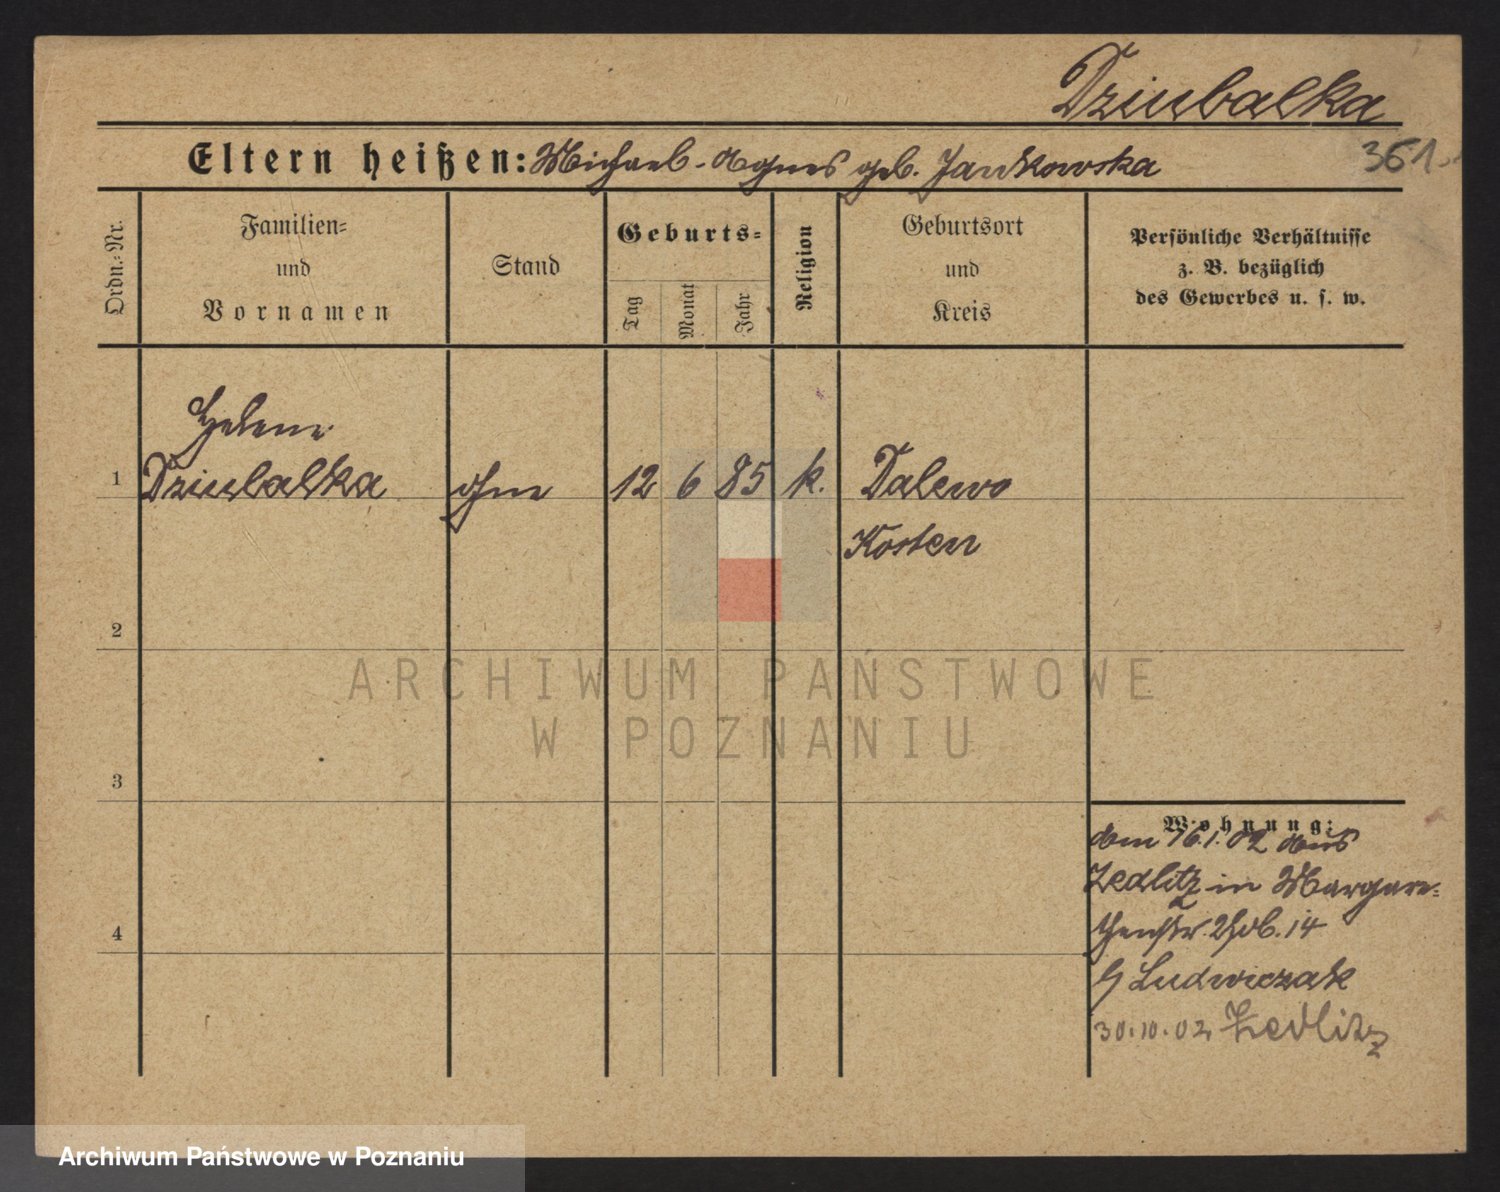 Dziubalka
361.
Eltern heißen: Michael - Agnes geb. Jankowska
Ordn.-Nr.
Familien-
und
Vornamen
Stand
Geburts-
Tag
Monat
Jahr
Religion
Geburtsort
und
Kreis
Persönliche Verhältnisse
z. B. bezüglich
des Gewerbes u. s. w.
Helene
1 Dziubalka ohne 12 6 85 k. Dalewo
Kosten
2
3
4
Wohnung:
am 16.1.02 aus
Zedlitz in Margare-
thenstr. 14
Ludwiczak
30.10.02 Zedlitz
ARCHIWUM PAŃSTWOWE
W POZNANIU
Archiwum Państwowe w Poznaniu